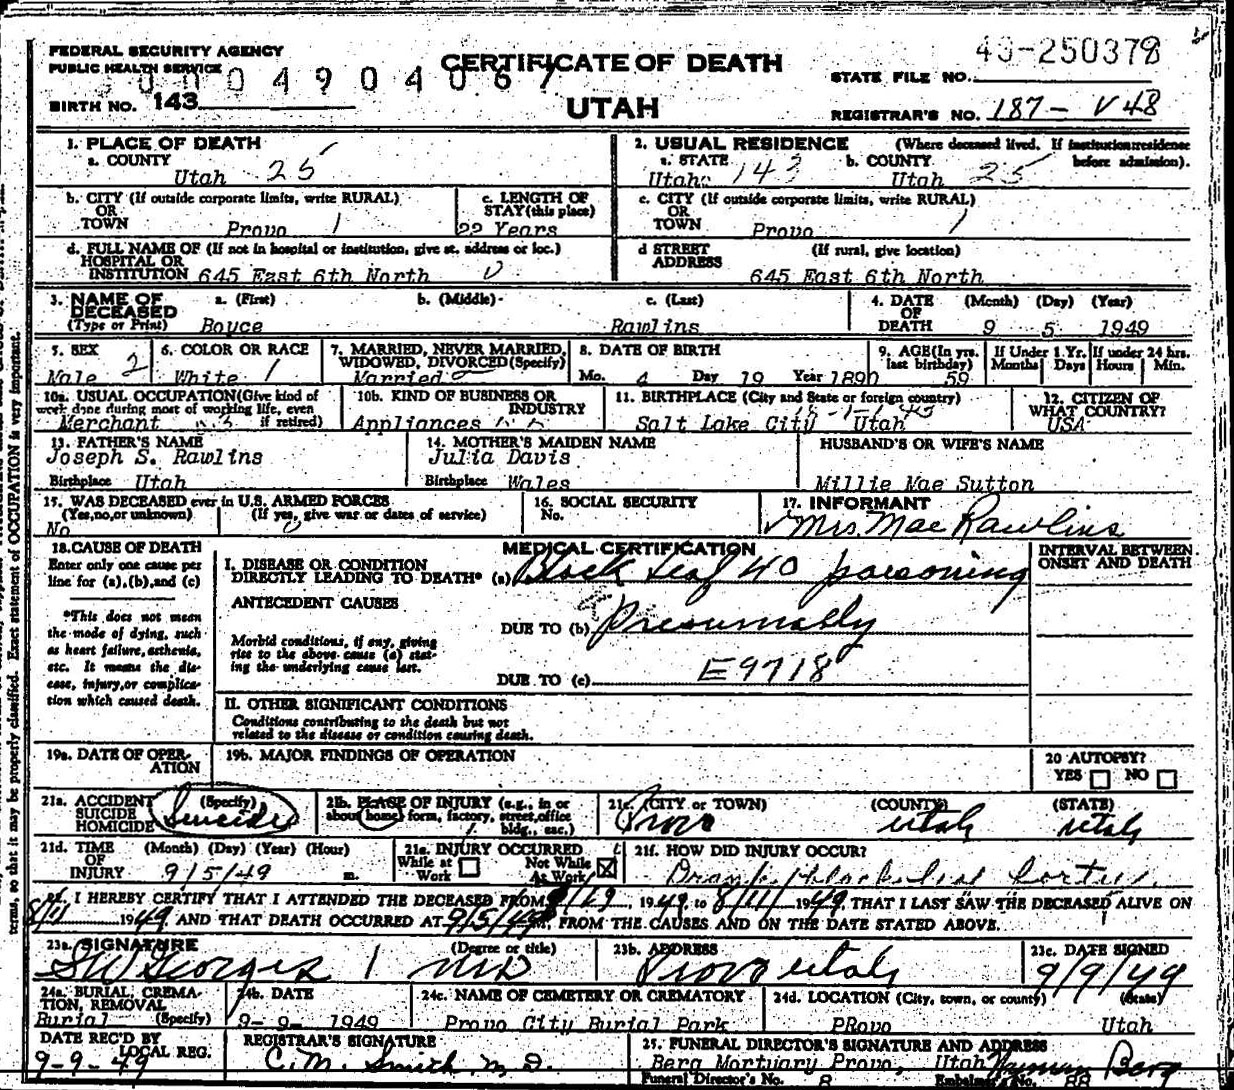 FEDERAL SECURITY AGENCY
PUBLIC HEALTH SERVICE
BIRTH NO. 143
CERTIFICATE OF DEATH
UTAH
43-250378
STATE FILE NO.
REGISTRAR'S NO. 187- V48
1. PLACE OF DEATH
a. COUNTY
Utah 25
2. USUAL RESIDENCE (Where deceased lived. If institution: residence before admission).
a. STATE b. COUNTY
Utah 143 Utah 25
b. CITY (If outside corporate limits, write RURAL)
OR
TOWN Provo 1
c. LENGTH OF
STAY (this place)
22 Years
c. CITY (If outside corporate limits, write RURAL)
OR
TOWN Provo 1
d. FULL NAME OF (If not in hospital or institution, give st. address or loc.)
HOSPITAL OR
INSTITUTION 645 East 6th North 0
d STREET (If rural, give location)
ADDRESS
645 East 6th North
3. NAME OF DECEASED
(Type or Print)
a. (First) b. (Middle) c. (Last)
Boyce Rawlins
4. DATE OF DEATH (Month) (Day) (Year)
9 5 1949
5. SEX
Male 2
6. COLOR OR RACE
White 1
7. MARRIED, NEVER MARRIED,
WIDOWED, DIVORCED (Specify)
Married
8. DATE OF BIRTH
Mo. 4 Day 19 Year 1890
9. AGE (In yrs. last birthday)
59
If Under 1 Yr.
Months Days
If under 24 hrs.
Hours Min.
10a. USUAL OCCUPATION (Give kind of
work done during most of working life, even
if retired)
Merchant
10b. KIND OF BUSINESS OR
INDUSTRY
Appliances
11. BIRTHPLACE (City and State or foreign country)
Salt Lake City Utah
12. CITIZEN OF
WHAT COUNTRY?
USA
13. FATHER'S NAME
Joseph S. Rawlins
Birthplace Utah
14. MOTHER'S MAIDEN NAME
Julia Davis
Birthplace Wales
HUSBAND'S OR WIFE'S NAME
Millie Mae Sutton
15. WAS DECEASED ever in U.S. ARMED FORCES
(Yes, no, or unknown) (If yes, give war or dates of service)
No
16. SOCIAL SECURITY
No.
17. INFORMANT
Mrs. Mae Rawlins
18. CAUSE OF DEATH
Enter only one cause per
line for (a), (b), and (c)
*This does not mean
the mode of dying, such
as heart failure, asthenia,
etc. It means the dis-
ease, injury, or complica-
tion which caused death.
MEDICAL CERTIFICATION
I. DISEASE OR CONDITION
DIRECTLY LEADING TO DEATH* (a) Black Leaf 40 poisoning
ANTECEDENT CAUSES
DUE TO (b) Presumably
Morbid conditions, if any, giving
rise to the above cause (a) stat-
ing the underlying cause last.
DUE TO (c) E9718
II. OTHER SIGNIFICANT CONDITIONS
Conditions contributing to the death but not
related to the disease or condition causing death.
INTERVAL BETWEEN
ONSET AND DEATH
19a. DATE OF OPER-
ATION
19b. MAJOR FINDINGS OF OPERATION
20 AUTOPSY?
YES NO
21a. ACCIDENT (Specify)
SUICIDE
HOMICIDE
Suicide
21b. PLACE OF INJURY (e.g., in or
about home, form, factory, street, office
bldg., eac.)
21c. (CITY or TOWN) (COUNTY) (STATE)
Provo Utah Utah
21d. TIME (Month) (Day) (Year) (Hour)
OF
INJURY 9/5/49 m.
21e. INJURY OCCURRED
While at Work
Not While At Work
21f. HOW DID INJURY OCCUR?
Drank
I HEREBY CERTIFY THAT I ATTENDED THE DECEASED FROM 1949 to 8/11/ 1949, THAT I LAST SAW THE DECEASED ALIVE ON
8/11 1949 AND THAT DEATH OCCURRED AT 9/5/49 M., FROM THE CAUSES AND ON THE DATE STATED ABOVE.
23a. SIGNATURE (Degree or title)
SW Georges MD
23b. ADDRESS
Provo Utah
23c. DATE SIGNED
9/9/49
24a. BURIAL, CREMA-
TION, REMOVAL
(Specify)
Burial
24b. DATE
9-9-1949
24c. NAME OF CEMETERY OR CREMATORY
Provo City Burial Park
24d. LOCATION (City, town, or county) (State)
PRovo Utah
DATE REC'D BY
LOCAL REG.
9-9-49
REGISTRAR'S SIGNATURE
C. M. Smith, M. D.
25. FUNERAL DIRECTOR'S SIGNATURE AND ADDRESS
Berg Mortuary Provo, Utah Berg
Funeral Director's No. 8 Embalmer's No. 98